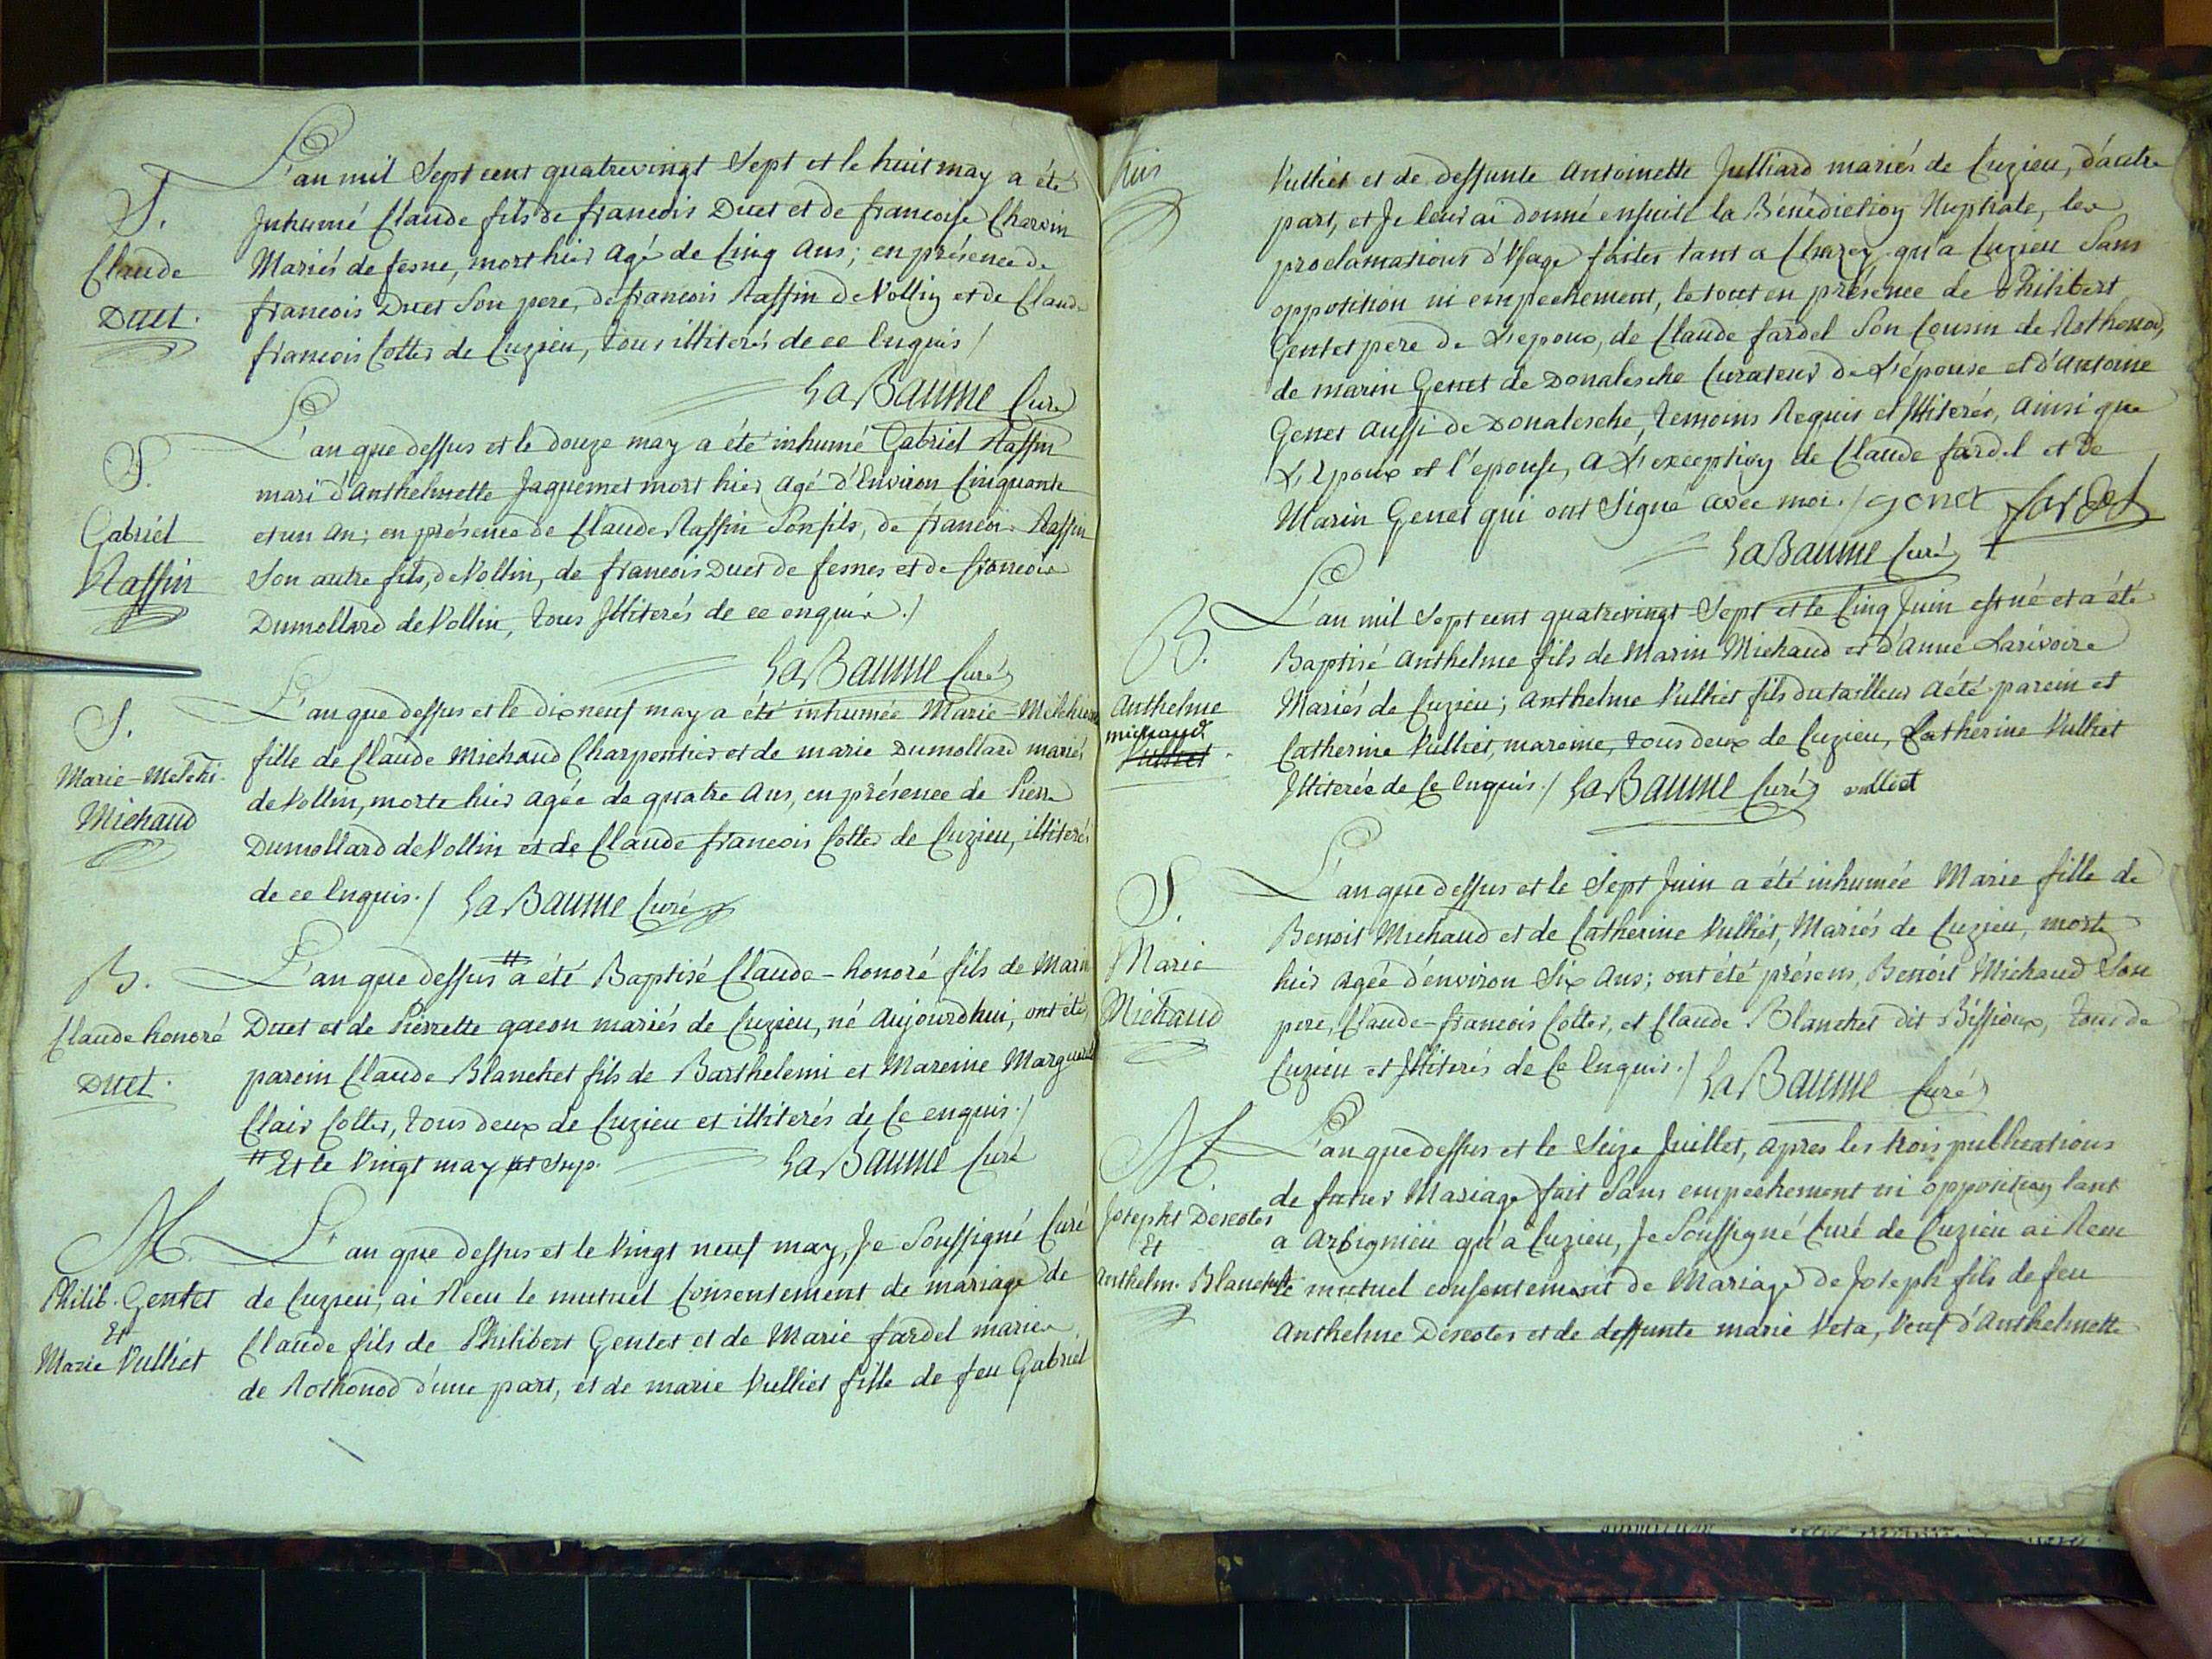 S.
Claude
Duet.
L'an mil Sept cent quatrevingt Sept et le huit may a été
Inhumé Claude fils de francois Duet et de francoise Charvin
Mariés de fesne, mort hier agé de Cinq ans; en présence de
francois Duet Son pere, de francois Raffin de Vollin et de Claude
francois Colter de Cuzieu, tous illiterés de ce Enquis /
La Baume Curé
S.
Gabriel
Raffin
L'an que dessus et le douze may a été inhumé Gabriel Raffin
mari d'Anthelmette Jaquemet mort hier agé d'Environ Cinquante
et un an; en présence de Claude Raffin Son fils, de francois Raffin
Son autre fils, de Vollin, de francois Duet de fesnes et de francois
Dumollard de Vollin, tous Illiterés de ce enquis./
La Baume Curé
S.
Marie-Melchi-
Michaud
L'an que dessus et le dix neuf may a été inhumée Marie-Melchiore
fille de Claude Michaud Charpentier et de marie Dumollard mariés
de Vollin, morte hier agée de quatre ans, en présence de Pierre
Dumollard de Vollin et de Claude francois Colter de Cuzieu, illiterés
de ce Enquis./ La Baume Curé
B.
Claude honoré
Duet.
L'an que dessus # a été Baptisé Claude-honoré fils de Marin
Duet et de Pierrette gacon mariés de Cuzieu, né Aujourdhui, ont été
parein Claude Blanchet fils de Barthelemi et Mareine Marguerite
Clair Colter, tous deux de Cuzieu et illiterés de Ce enquis./
# Et le Vingt may ut Sup.
La Baume Curé
M.
Philib. Gentet
Et
Marie Vulliet
L'an que dessus et le Vingt neuf may, Je Soussigné Curé
de Cuzieu, ai Recu le mutuel Consentement de mariage de
Claude fils de Philibert Gentet et de Marie fardel mariés
de Rothonod d'une part, et de marie Vulliet fille de feu Gabriel
Vulliet et de deffunte Antoinette Julliard mariés de Cuzieu, d'autre
part, et Je leur ai donné ensuite la Bénédiction Nuptiale, les
proclamations d'Usage faites tant a Chazey qu'a Cuzieu Sans
opposition ni empechement, le tout en présence de Philibert
Gentet pere de L'epoux, de Claude fardel Son Cousin de Rothonod,
de marin Genet de Donalesche Curateur de L'épouse et d'Antoine
Genet aussi de Donalesche, temoins Requis et Illiterés, ainsi que
L'Epoux et l'épouse, a L'exception de Claude fardel et de
Marin Genet qui ont Signé avec moi./ genet fardel
La Baume Curé
B.
Anthelme
michaud
Vulliet
L'an mil Sept cent quatrevingt Sept et le Cinq Juin est né et a été
Baptisé Anthelme fils de Marin Michaud et d'Anne Larivoire
Mariés de Cuzieu; Anthelme Vulliet fils du tailleur a été parein et
Catherine Vulliet, mareine, tous deux de Cuzieu, Catherine Vulliet
Illiterée de Ce Enquis./ La Baume Curé vulliet
S.
Marie
Michaud
L'an que dessus et le Sept Juin a été inhumée Marie fille de
Benoit Michaud et de Catherine Vulliet, Mariés de Cuzieu, morte
hier agée d'environ Six ans; ont été présens, Benoit Michaud Son
pere, Claude-francois Colter, et Claude Blanchet dit Bissioux, tous de
Cuzieu et Illiterés de Ce Enquis./ La Baume Curé
M.
Josepht Descotes
Et
Anthelm. Blanchet
L'an que dessus et le Seize Juillet, apres les trois publications
de futur Mariage fait Sans empechement ni opposition tant
a Arbignieu qu'à Cuzieu, Je Soussigné Curé de Cuzieu ai Recu
le mutuel consentement de Mariage de Joseph fils de feu
Anthelme Descotes et de deffunte marie Veta, Veuf d'Anthelmette